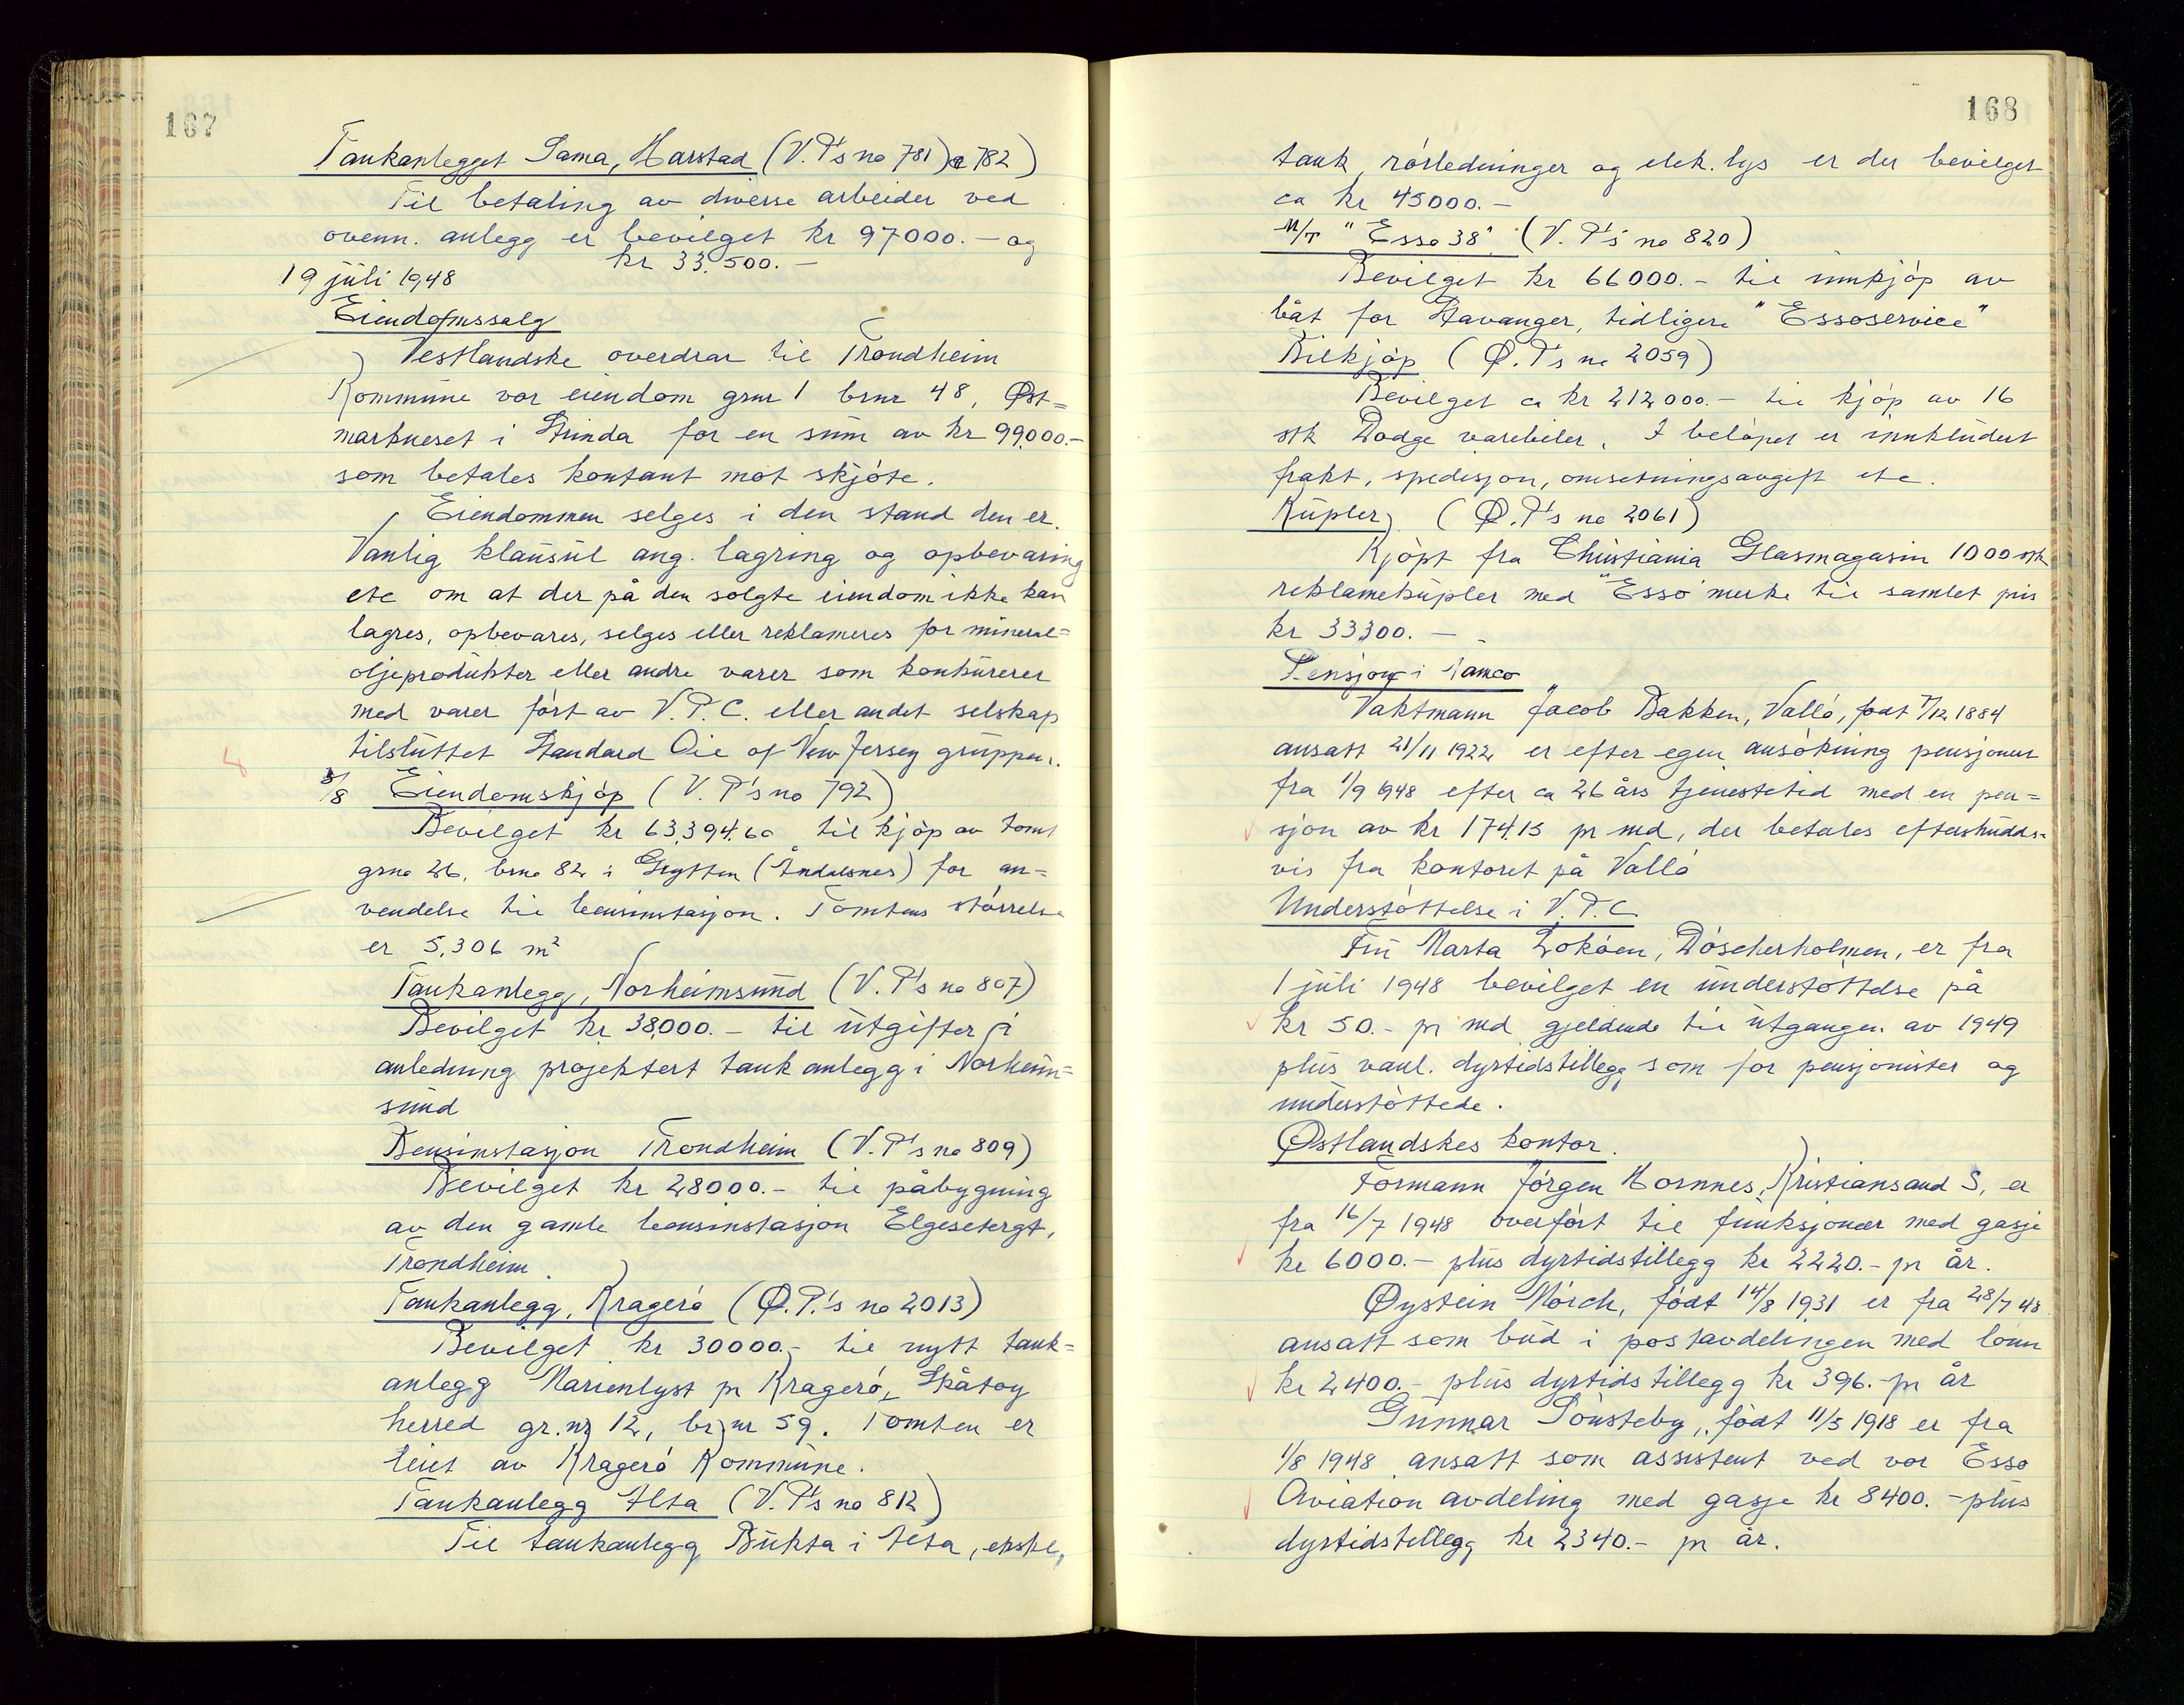 167
Tankanlegget Sama, Harstad (V.P's no 781) & 782)
Til betaling av diverse arbeider ved
ovenn. anlegg er bevilget kr 97000.- og
kr 33.500.-
19 juli 1948
Eiendomssalg
Vestlandske overdrar til Trondheim
Kommune vor eiendom grnr 1 brnr 48, Øst=
markneset i Strinda for en sum av kr 99.000.-
som betales kontant mot skjöte.
Eiendommen selges i den stand den er.
Vanlig klausul ang. lagring og opbevaring
etc om at der på den solgte eiendom ikke kan
lagres, opbevares, selges eller reklameres for mineral=
oljeprodukter eller andre varer som konkurerer
med varer fört av V.P.C. eller andet selskap
tilsluttet Standard Oil of New Jersey gruppen.
3/8 Eiendomskjöp (V. P's no 792)
Bevilget kr 63.394.60 til kjöp av tomt
grno 26, brno 82 i Grytten (Åndalsnes) for an=
vendelse til bensinstasjon. Tomtens störrelse
er 5.306 m²
Tankanlegg, Norheimsund (V. P's no 807)
Bevilget kr 38.000.- til utgifter i
anledning projektert tankanlegg i Norheim=
sund
Bensinstasjon Trondheim (V. P's no 809)
Bevilget kr 28000.- til påbygning
av den gamle bensinstasjon Elgesetergt,
Trondheim.
Tankanlegg, Kragerö (Ø.P.'s no 2013)
Bevilget kr 30000.- til nytt tank=
anlegg Marienlyst pr Kragerö, Skåtöy
herred gr.nr 12, br nr 59. Tomten er
leiet av Kragerö Kommune.
Tankanlegg Alta (V. P's no 812)
Til tankanlegg Bukta i Alta, ekskl,
168
tank, rörledninger og elek. lys er der bevilget
ca kr 45000.-
M/T "Esso 38". (V. P's no 820)
Bevilget kr 66000.- til innkjöp av
båt for Stavanger, tidligere "Essoservice"
Bilkjöp (Ø. P's no 2059)
Bevilget ca kr 212000.- til kjöp av 16
stk Dodge varebiler. I belöpet er innkludert
frakt, spedisjon, omsetningsavgift etc.
Kupler (Ø. P's no 2061)
Kjöpt fra Christiania Glasmagasin 1000 stk
reklamekupler med "Esso" merke til samlet pris
kr 33300.-
Pensjon i Namco
Vaktmann Jacob Bakken, Vallö, födt 7/12 1884
ansatt 21/11 1922 er efter egen ansökning pensjonert
fra 1/9 1948 efter ca 26 års tjenestetid med en pen=
sjon av kr 174.15 pr md, der betales efterskudds=
vis fra kontoret på Vallö
Understöttelse i V.P.C
Fru Marta Loköen, Döscherholmen, er fra
1 juli 1948 bevilget en understöttelse på
kr 50.- pr md gjeldende til utgangen av 1949
plus vanl. dyrtidstillegg som for pensjonister og
understöttede.
Østlandskes kontor.
Formann Jörgen Hornnes, Kristiansand S, er
fra 16/7 1948 overfört til funksjonær med gasje
kr 6000.- plus dyrtidstillegg kr 2220.- pr år.
Øystein Mörch, födt 14/8 1931 er fra 28/7 48
ansatt som bud i postavdelingen med lönn
kr 2400.- plus dyrtidstillegg kr 396.- pr år
Gunnar Sönsteby, födt 11/5 1918 er fra
1/8 1948 ansatt som assistent ved vor Esso
Aviation avdeling med gasje kr 8400.- plus
dyrtidstillegg kr 2340.- pr år.